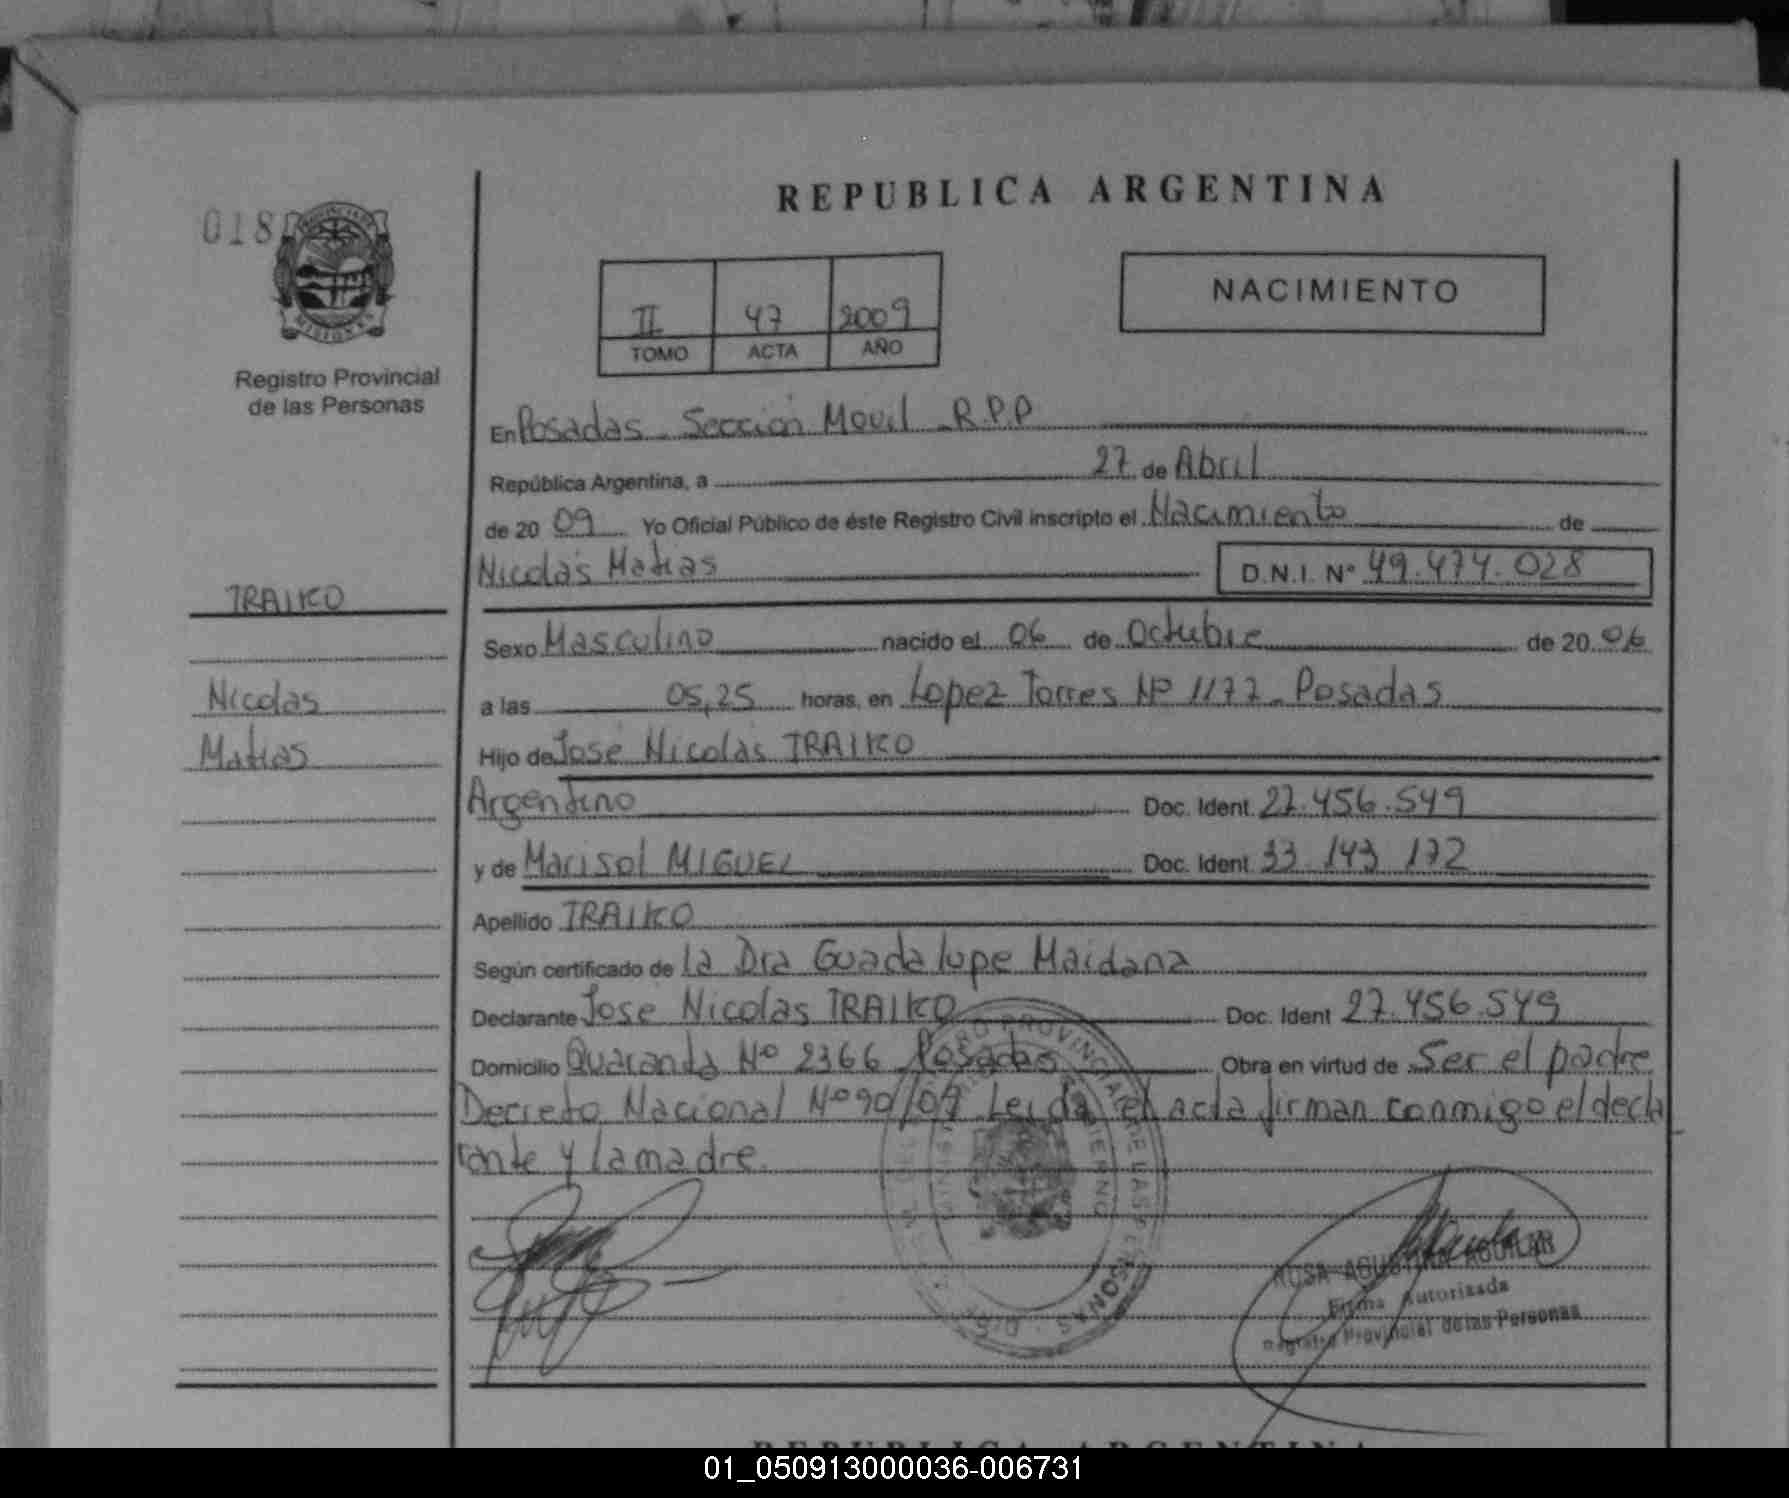 REPUBLICA ARGENTINA
018
PROVINCIA
MISIONES
Registro Provincial
de las Personas
II 47 2009
TOMO ACTA AÑO
NACIMIENTO
En Posadas - Sección Movil - R.P.P
República Argentina, a 27 de Abril
de 20 09 Yo Oficial Público de éste Registro Civil inscripto el Nacimiento de
Nicolás Matias D.N.I. Nº 49.474.028
TRAIKO
Sexo Masculino nacido el 06 de Octubre de 20 06
Nicolas
a las 05,25 horas, en Lopez Torres Nº 1177 - Posadas
Matias
Hijo de Jose Nicolas TRAIKO
Argentino Doc. Ident. 27.456.549
y de Marisol MIGUEL Doc. Ident. 33.143.172
Apellido TRAIKO
Según certificado de la Dra Guadalupe Maidana
Declarante Jose Nicolas TRAIKO Doc. Ident 27.456.549
Domicilio Quaranta Nº 2366 Posadas Obra en virtud de Ser el padre
Decreto Nacional Nº 90/09 Leida el acta firman conmigo el decla
rante y la madre.
ROSA AGUSTINA AGUILAR
Firma Autorizada
Registro Provincial de las Personas
REPUBLICA ARGENTINA
01_050913000036-006731